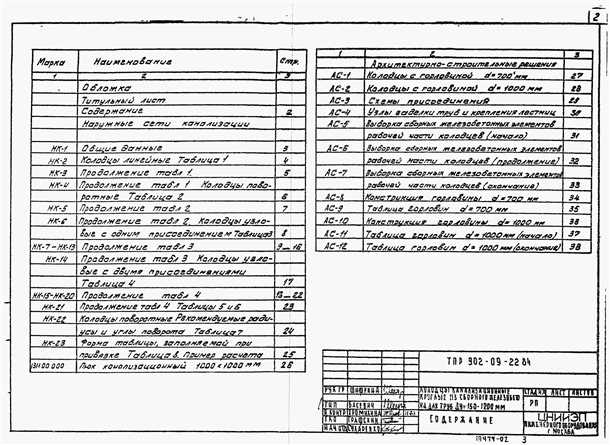 2
Марка Наименование стр.
1 2 3
Обложка
Титульный лист
Содержание 2
Наружные сети канализации
НК-1 Общие данные 3
НК-2 Колодцы линейные Таблица 1 4
НК-3 Продолжение табл 1. 5
НК-4 Продолжение табл 1 Колодцы пово-
ротные Таблица 2 6
НК-5 Продолжение табл 2 7
НК-6 Продолжение табл 2, Колодцы узло-
вые с одним присоединением Таблица 3 8
НК-7-НК-13 Продолжение табл 3 9-16
НК-14 Продолжение табл 3 Колодцы узло-
вые с двумя присоединениями
Таблица 4 17
НК-15-НК-20 Продолжение табл 4
НК-21 Продолжение табл 4 Таблицы 5 и 6 23
НК-22 Колодцы поворотные Рекомендуемые ради-
усы и углы поворота Таблица 7 24
НК-23 Форма таблицы, заполняемой при
привязке Таблица 8. Пример расчета 25
Люк канализационный 1000×1000 мм 26
1 2 3
Архитектурно-строительные решения
АС-1 Колодцы с горловиной d=700 мм 27
АС-2 Колодцы с горловиной d=1000 мм 28
АС-3 Схемы присоединения
АС-4 Узлы заделки труб и крепления лестниц 30
АС-5 Выборка сборных железобетонных элементов
рабочей части колодцев (начало) 31
АС-6 Выборка сборных железобетонных элементов
рабочей части колодцев (продолжение) 32
АС-7 Выборка сборных железобетонных элементов
рабочей части колодцев (окончание) 33
АС-8 Конструкция горловины d=700 мм 34
АС-9 Таблица горловин d=700 мм 35
АС-10 Конструкция горловины d=1000 мм
АС-11 Таблица горловин d=1000 мм (начало) 37
АС-12 Таблица горловин d=1000 мм (окончание) 38
ТПР 902-09-22.84
Колодцы канализационные
круглые из сборного железобето-
на для труб Дн=150-1200 мм
Стадия Лист Листов
РП
Содержание
ЦНИИЭП
инженерного оборудования
г. Москва
3